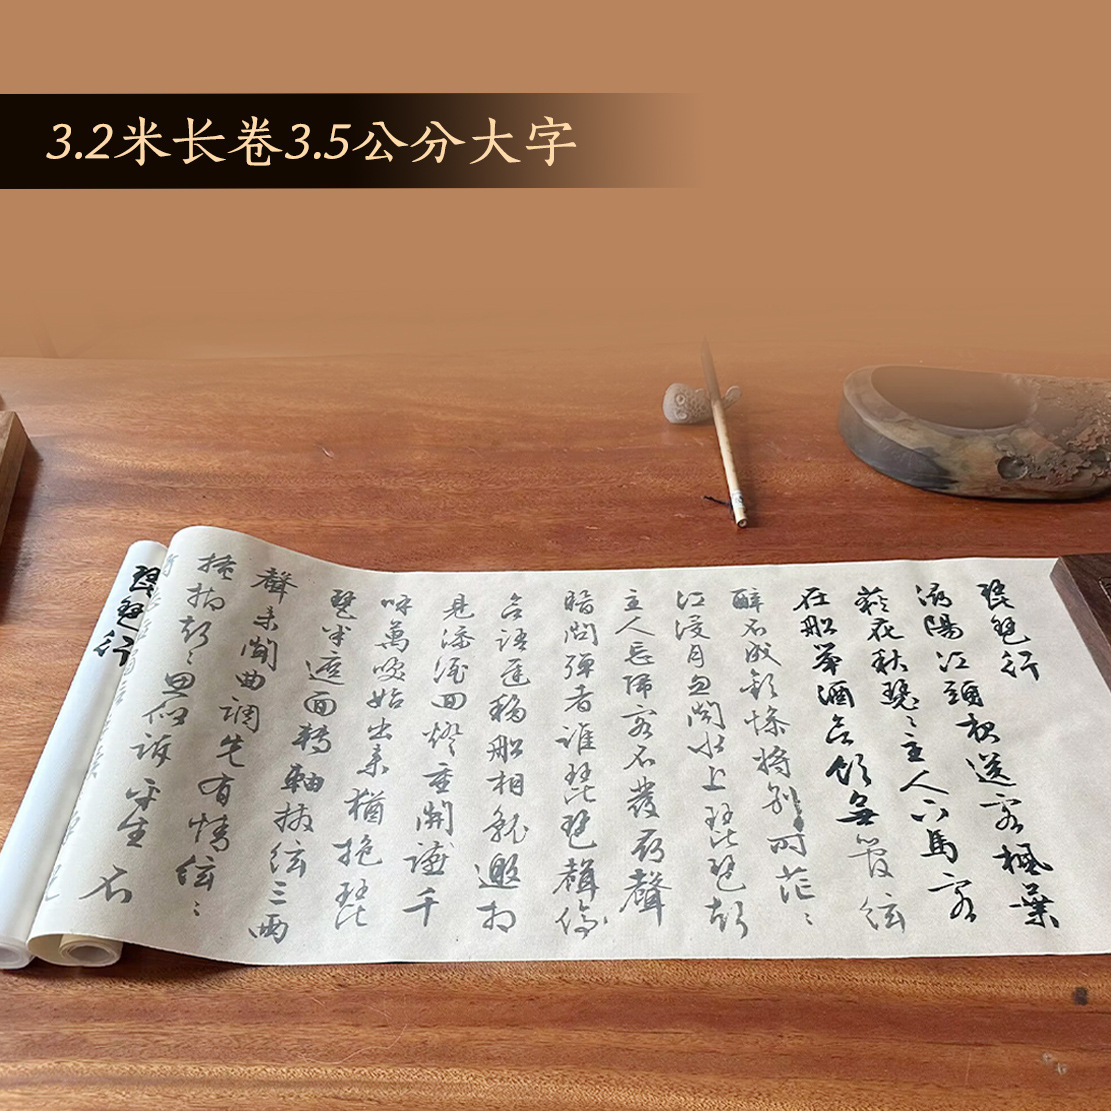 3.2米长卷3.5公分大字
琵琶行
潯陽江頭夜送客楓葉
荻花秋瑟〻主人下馬客
在船举酒欲飲無管弦
醉不成歡慘將別时茫〻
江浸月忽聞水上琵琶聲
主人忘歸客不發尋聲
暗問彈者誰琵琶聲停
欲語遲移船相近邀相
見添酒回燈重開宴千
呼萬喚始出來猶抱琵
琶半遮面轉軸撥絃三兩
聲未聞曲調先有情絃〻
掩抑聲〻思似訴平生不
琵琶行